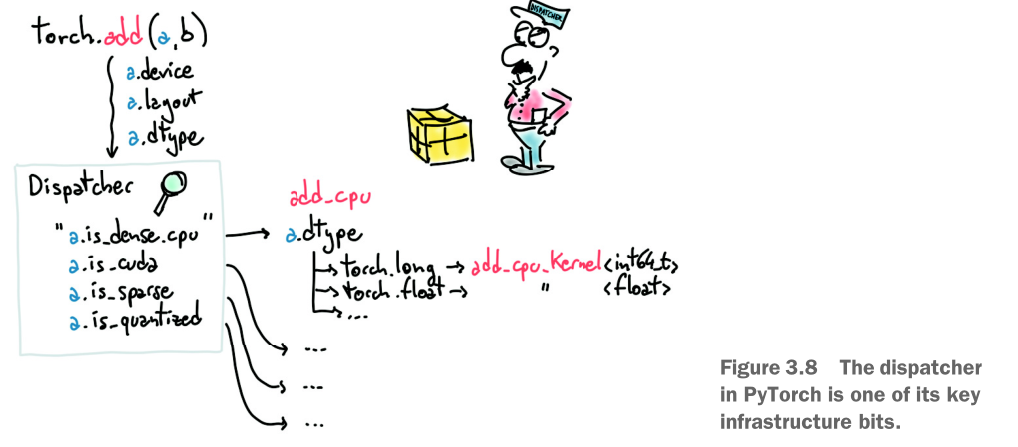 torch.add(a,b)
a.device
a.layout
a.dtype
DISPATCHER
Dispatcher
"a.is_dense.cpu"
a.is_cuda
a.is_sparse
a.is_quantized
add_cpu
a.dtype
torch.long → add_cpu_kernel<int64_t>
torch.float → " <float>
...
...
...
...
Figure 3.8 The dispatcher
in PyTorch is one of its key
infrastructure bits.